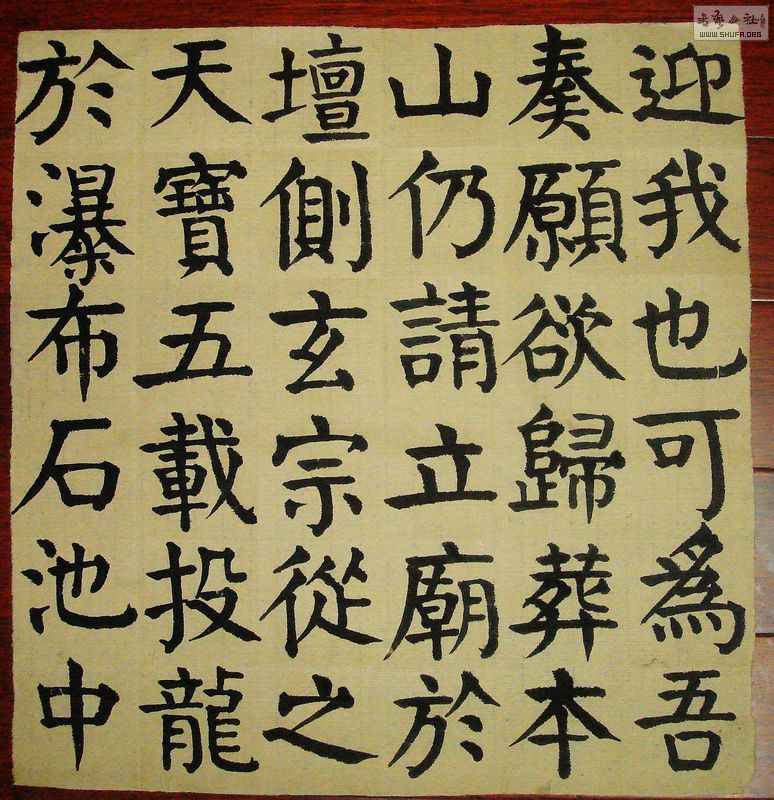 迎我也可爲吾
奏願欲歸葬本
山仍請立廟於
壇側玄宗從之
天寶五載投龍
於瀑布石池中
WWW.SHUFA.ORG